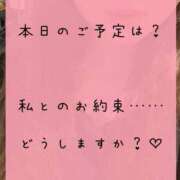 本日のご予定は？
私とのお約束……
どうしますか？♡